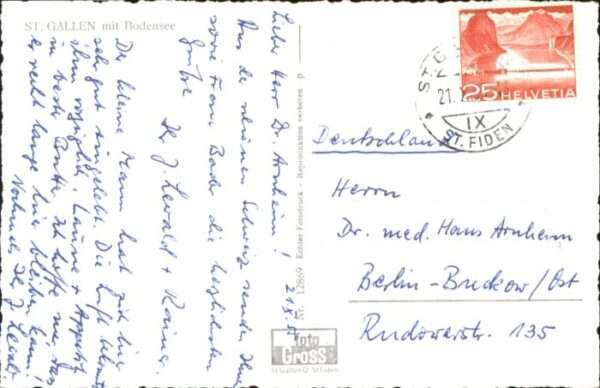 ST. GALLEN mit Bodensee
Liebe Herr Dr. Arnheim! 21.X.
Aus der schönen Schweiz senden Ihnen
sowie Frau Beate die herzlichsten
Grüße
Ihr J. Lewald + Rainer.
Der kleine Mann hat sich hier
sehr gut eingelebt. Die Luft bekommt
ihm vorzüglich. Laune + Appetit
in bester Ich hoffe nur, das
er recht lange hier bleiben kann!
Nochmals Ihr J. Lewald
Nr. 12869 Echter Fotodruck - Reproduktion verboten P
Foto
GROSS
St. Gallen O St. Fiden
25 HELVETIA
ST. G
21. X
IX
ST. FIDEN
Deutschland
Herrn
Dr. med. Hans Arnheim
Berlin-Buckow/Ost
Rudowerstr. 135